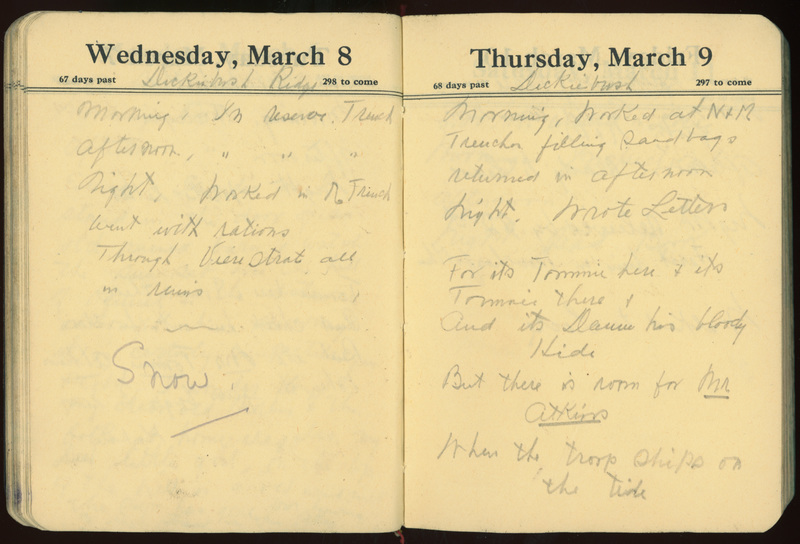 Wednesday, March 8
67 days past Dickiebush Ridge 298 to come
Morning, In reserve Trench
Afternoon, " " "
Night, Worked in Trench
went with rations
Through Vierstrat all
in ruins
Snow.
Thursday, March 9
68 days past Dickiebush 297 to come
Morning, Worked at N+M
Trenches filling Sandbags
returned in afternoon
Night. Wrote Letters
For its Tommie here & its
Tommie there &
And its Damn his bloody
Hide
But there is room for Mr
Atkins
When the troop ships on
the Tide